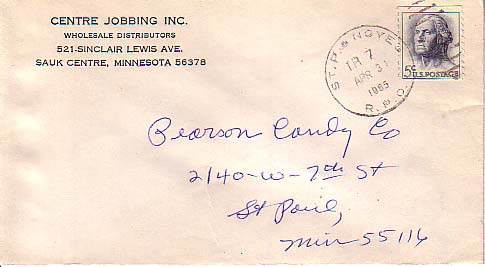 CENTRE JOBBING INC.
WHOLESALE DISTRIBUTORS
521-SINCLAIR LEWIS AVE.
SAUK CENTRE, MINNESOTA 56378
ST. P. & NOYE
TR 7
APR 31
1965
R.P.O.
5¢
U.S. POSTAGE
Pearson Candy Co
2140-W-7th St
St Paul,
Minn 55116